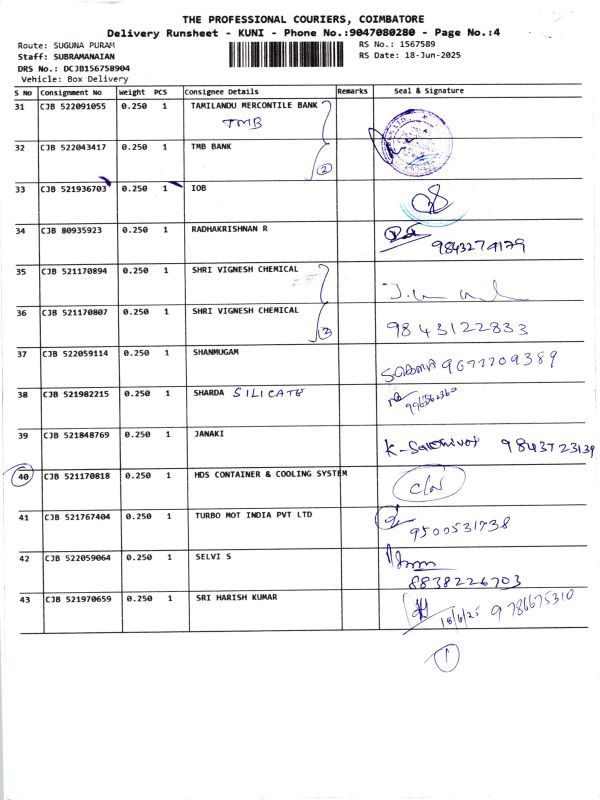 THE PROFESSIONAL COURIERS, COIMBATORE
Delivery Runsheet - KUNI - Phone No.:9047080280 - Page No.:4
Route: SUGUNA PURAM
RS No.: 1567589
Staff: SUBRAMANAIAN
RS Date: 18-Jun-2025
DRS No.: DCJB156758904
Vehicle: Box Delivery
S No Consignment No Weight PCS Consignee Details Remarks Seal & Signature
31 CJB 522091055 0.250 1 TAMILANDU MERCONTILE BANK
TMB
32 CJB 522043417 0.250 1 TMB BANK
2
33 CJB 521936703 0.250 1 IOB
34 CJB 80935923 0.250 1 RADHAKRISHNAN R
9843274179
35 CJB 521170894 0.250 1 SHRI VIGNESH CHEMICAL
36 CJB 521170807 0.250 1 SHRI VIGNESH CHEMICAL
2 9843122833
37 CJB 522059114 0.250 1 SHANMUGAM
9677209389
38 CJB 521982215 0.250 1 SHARDA SILICATE
39 CJB 521848769 0.250 1 JANAKI
9843723139
40 CJB 521170818 0.250 1 HDS CONTAINER & COOLING SYSTEM
41 CJB 521767404 0.250 1 TURBO MOT INDIA PVT LTD
9500531738
42 CJB 522059064 0.250 1 SELVI S
8838226703
43 CJB 521970659 0.250 1 SRI HARISH KUMAR
18/6/25 9786675310
1